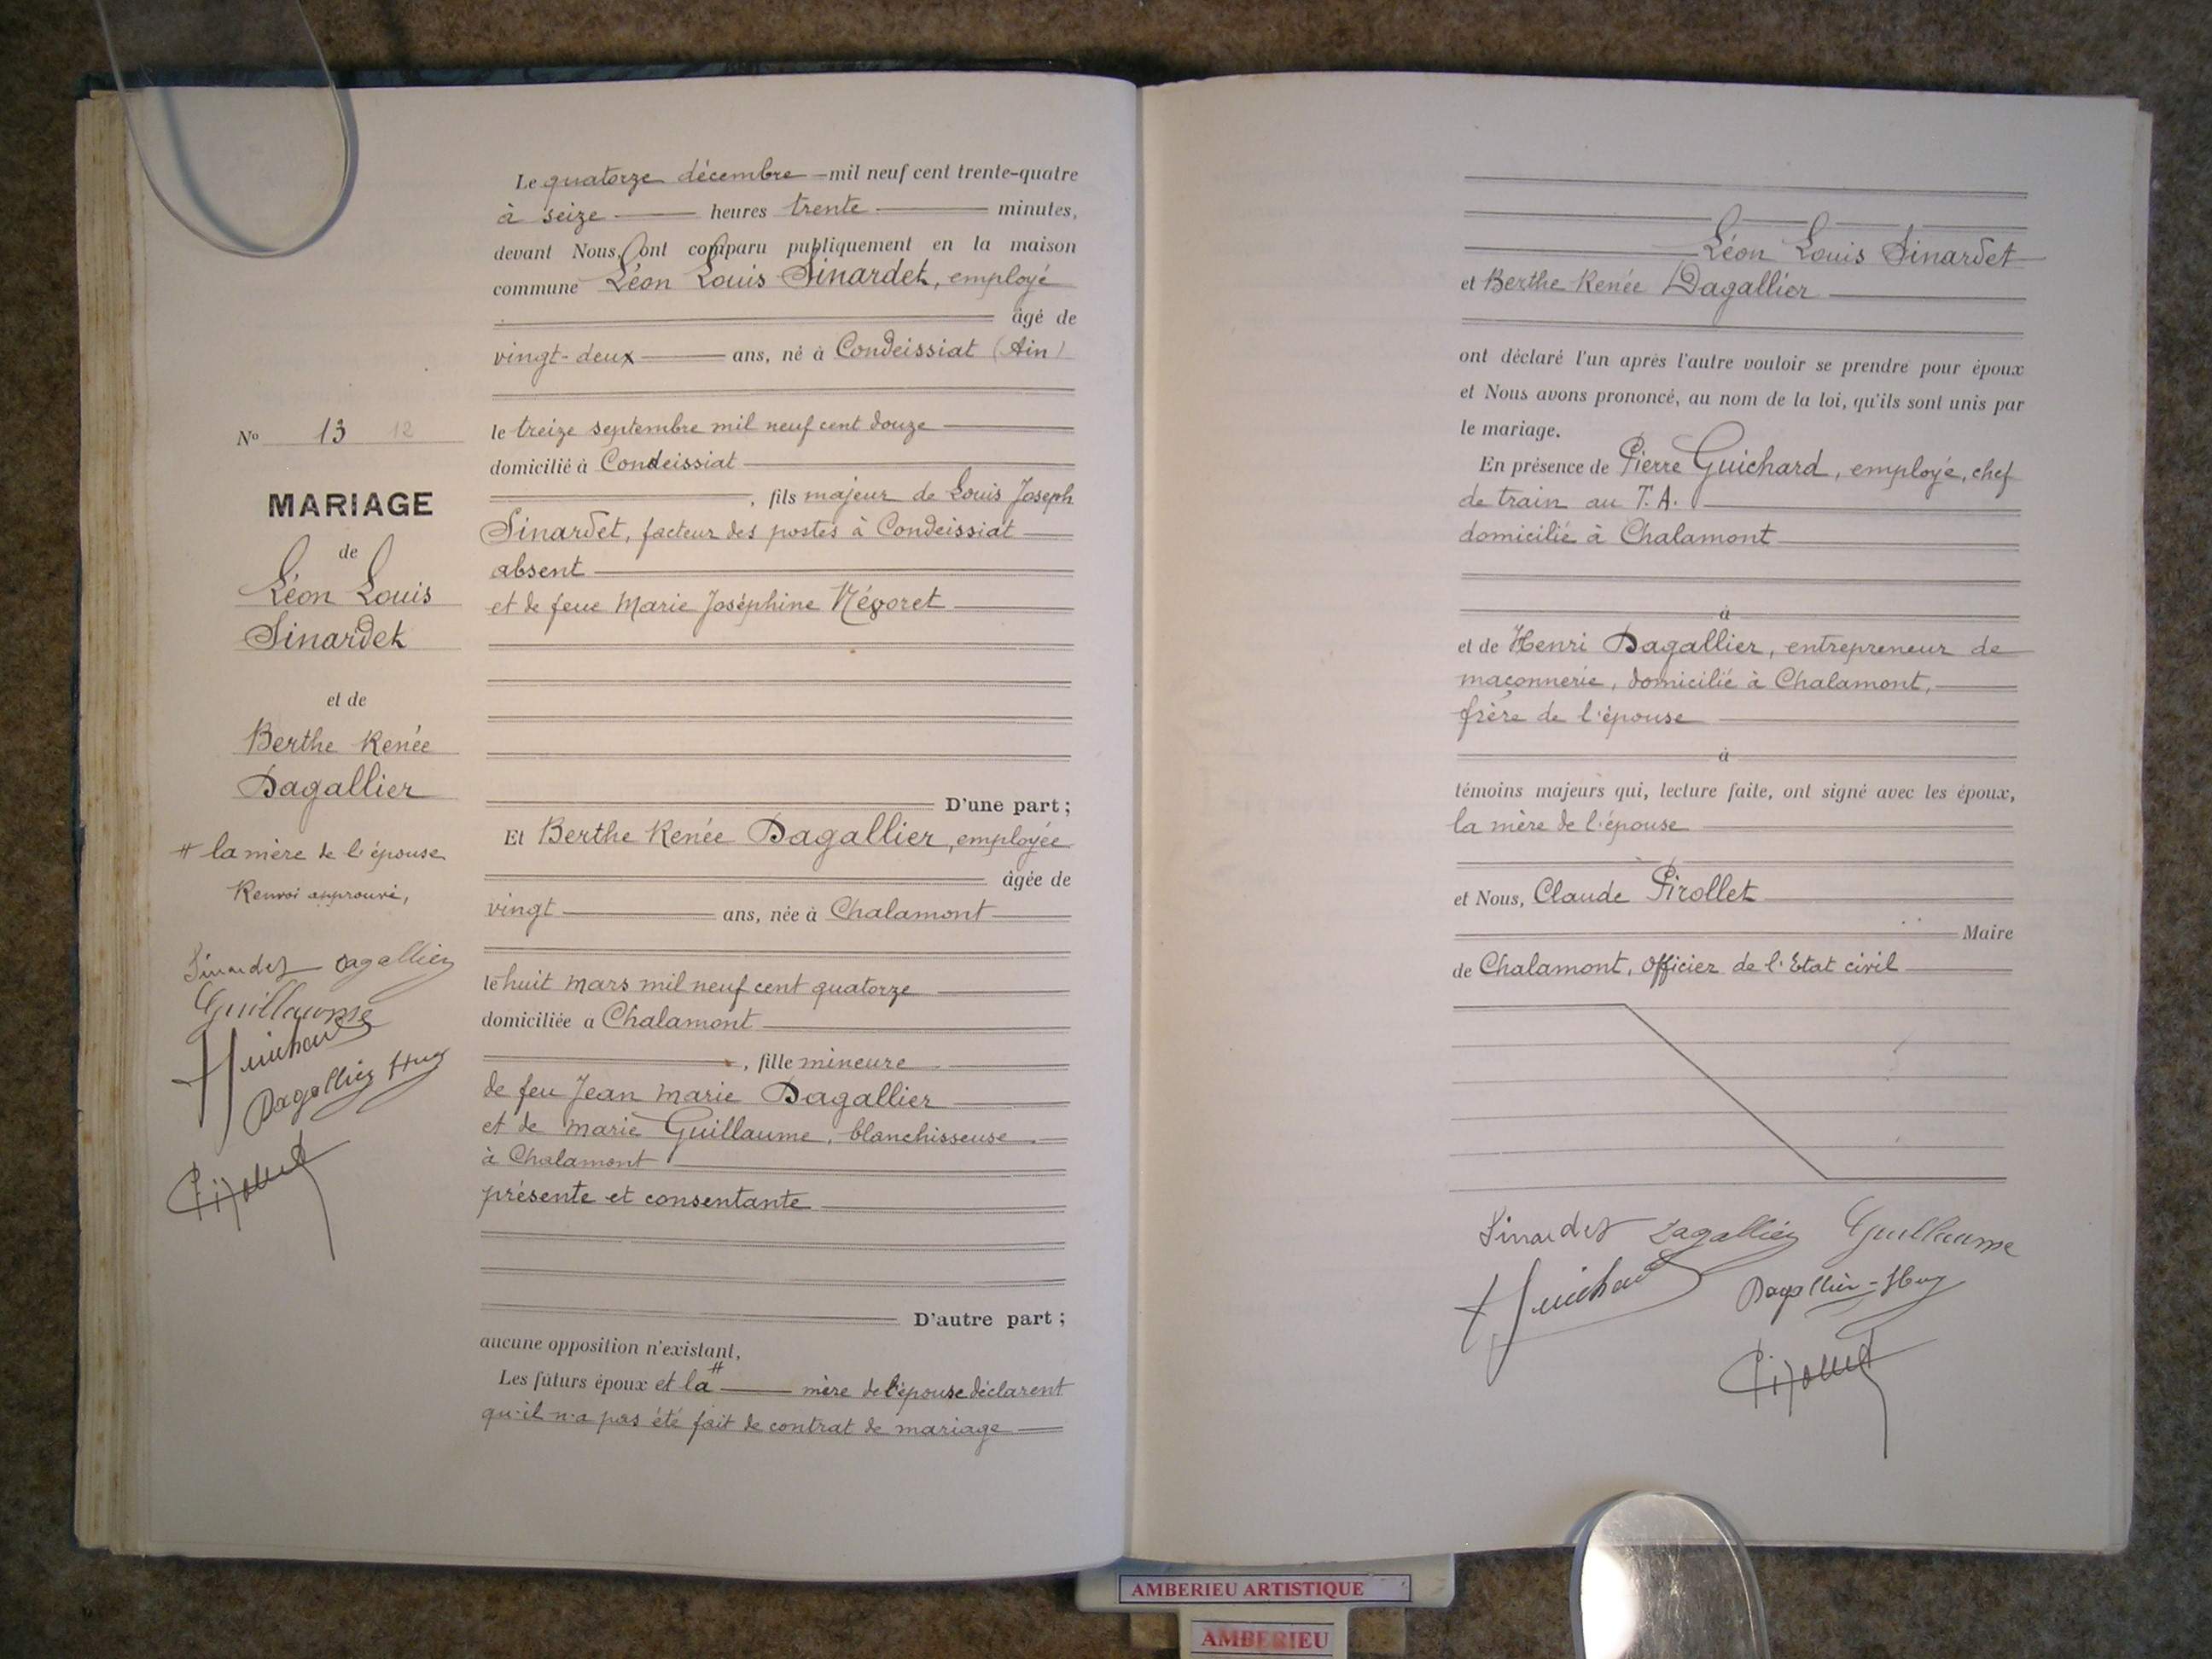 Le quatorze décembre mil neuf cent trente-quatre
à seize heures trente minutes,
devant Nous, ont comparu publiquement en la maison
commune Léon Louis Sinardet, employé
âgé de
vingt-deux ans, né à Condeissiat (Ain)
le treize septembre mil neuf cent douze
domicilié à Condeissiat
, fils majeur de Louis Joseph
Sinardet, facteur des postes à Condeissiat
absent
et de feue Marie Joséphine
D'une part ;
Et Berthe Renée Dagallier, employée
âgée de
vingt ans, née à Chalamont
le huit mars mil neuf cent quatorze
domiciliée à Chalamont
, fille mineure
de feu Jean Marie Dagallier
et de Marie Guillaume, blanchisseuse
à Chalamont
présente et consentante
D'autre part ;
aucune opposition n'existant,
Les futurs époux et la # mère de l'épouse déclarent
qu'il n'a pas été fait de contrat de mariage
No 13 12
MARIAGE
de
Léon Louis
Sinardet
et de
Berthe Renée
Dagallier
# la mère de l'épouse
Renvoi approuvé,
Sinardet Dagallier
Guillaume
Guichard
Dagallier
Pirollet
Léon Louis Sinardet
et Berthe Renée Dagallier
ont déclaré l'un après l'autre vouloir se prendre pour époux
et Nous avons prononcé, au nom de la loi, qu'ils sont unis par
le mariage.
En présence de Pierre Guichard, employé, chef
de train au T.A.
domicilié à Chalamont
à
et de Henri Dagallier, entrepreneur de
maçonnerie, domicilié à Chalamont,
frère de l'épouse
à
témoins majeurs qui, lecture faite, ont signé avec les époux,
la mère de l'épouse
et Nous, Claude Pirollet
Maire
de Chalamont, Officier de l'Etat civil
Sinardet Dagallier Guillaume
Guichard Dagallier
Pirollet
AMBERIEU ARTISTIQUE
AMBERIEU